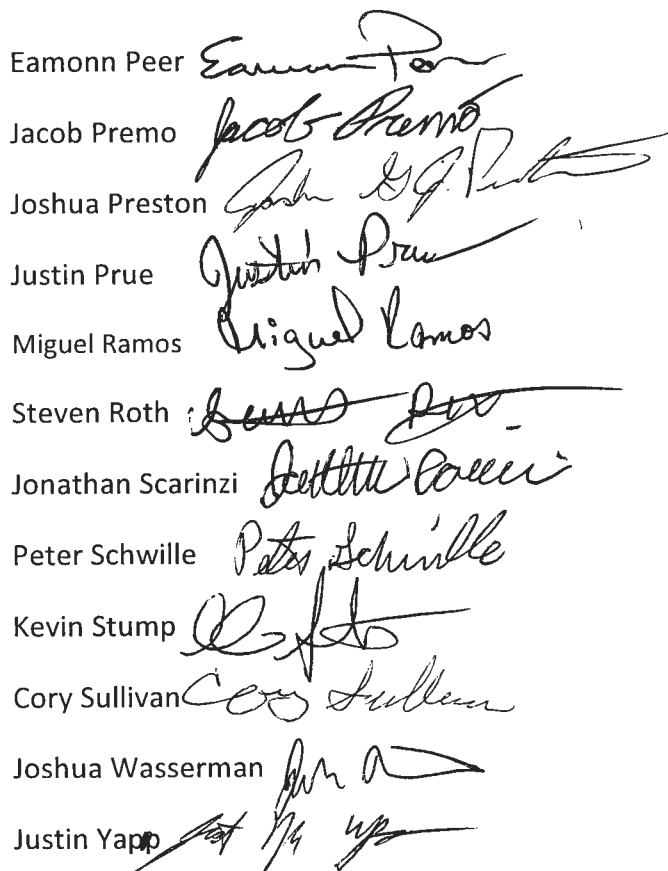 Eamonn Peer Eamonn Peer
Jacob Premo Jacob Premo
Joshua Preston Josh G J. Preston
Justin Prue Justin Prue
Miguel Ramos Miguel Ramos
Steven Roth
Jonathan Scarinzi
Peter Schwille Peter Schwille
Kevin Stump
Cory Sullivan Cory Sullivan
Joshua Wasserman
Justin Yapp